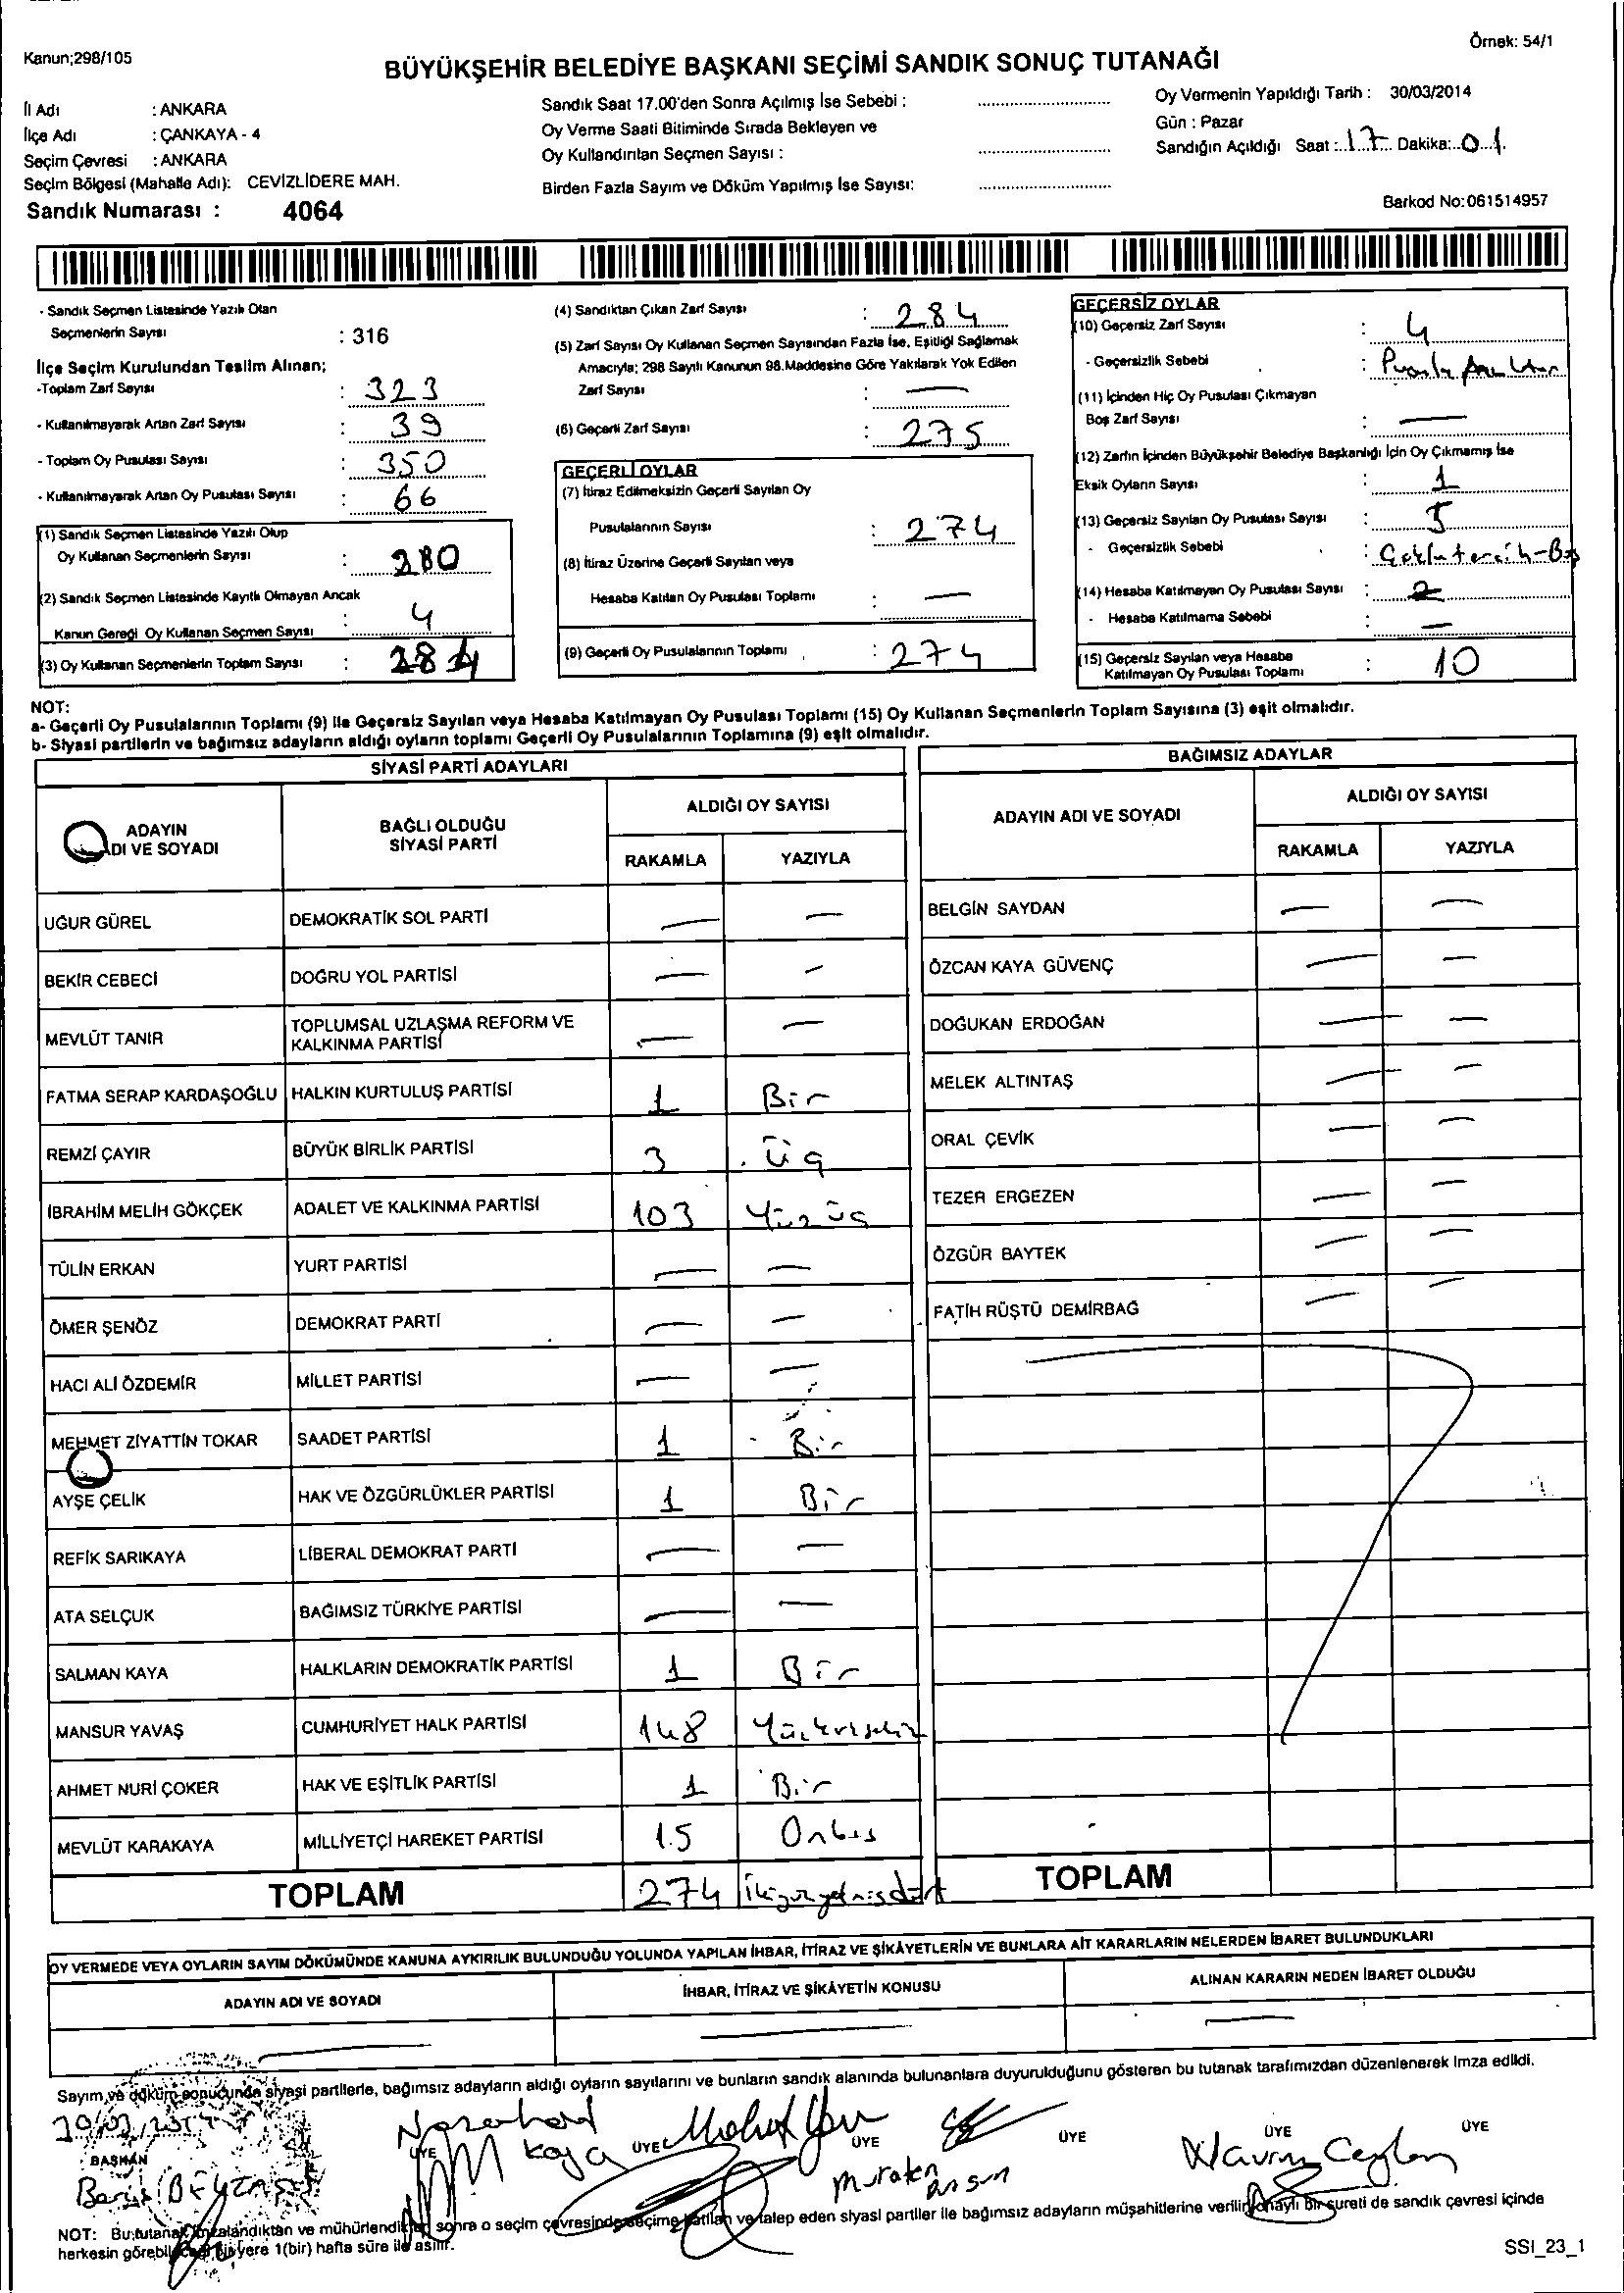 Kanun;298/105
Örnek: 54/1
BÜYÜKŞEHİR BELEDİYE BAŞKANI SEÇİMİ SANDIK SONUÇ TUTANAĞI
İl Adı : ANKARA
İlçe Adı : ÇANKAYA - 4
Seçim Çevresi : ANKARA
Seçim Bölgesi (Mahalle Adı): CEVİZLİDERE MAH.
Sandık Numarası : 4064
Sandık Saat 17.00'den Sonra Açılmış İse Sebebi :
Oy Verme Saati Bitiminde Sırada Bekleyen ve
Oy Kullandırılan Seçmen Sayısı :
Birden Fazla Sayım ve Döküm Yapılmış İse Sayısı:
Oy Vermenin Yapıldığı Tarih : 30/03/2014
Gün : Pazar
Sandığın Açıldığı Saat : 17 Dakika: 01
Barkod No:061514957
- Sandık Seçmen Listesinde Yazılı Olan
Seçmenlerin Sayısı : 316
İlçe Seçim Kurulundan Teslim Alınan;
-Toplam Zarf Sayısı : 323
- Kullanılmayarak Artan Zarf Sayısı : 39
- Toplam Oy Pusulası Sayısı : 350
- Kullanılmayarak Artan Oy Pusulası Sayısı : 66
(1) Sandık Seçmen Listesinde Yazılı Olup
Oy Kullanan Seçmenlerin Sayısı : 280
(2) Sandık Seçmen Listesinde Kayıtlı Olmayan Ancak
Kanun Gereği Oy Kullanan Seçmen Sayısı : 4
(3) Oy Kullanan Seçmenlerin Toplam Sayısı : 284
(4) Sandıktan Çıkan Zarf Sayısı : 284
(5) Zarf Sayısı Oy Kullanan Seçmen Sayısından Fazla İse, Eşitliği Sağlamak
Amacıyla; 298 Sayılı Kanunun 98.Maddesine Göre Yakılarak Yok Edilen
Zarf Sayısı : —
(6) Geçerli Zarf Sayısı : 275
GEÇERLİ OYLAR
(7) İtiraz Edilmeksizin Geçerli Sayılan Oy
Pusulalarının Sayısı : 274
(8) İtiraz Üzerine Geçerli Sayılan veya
Hesaba Katılan Oy Pusulası Toplamı : —
(9) Geçerli Oy Pusulalarının Toplamı : 274
GEÇERSİZ OYLAR
(10) Geçersiz Zarf Sayısı : 4
- Geçersizlik Sebebi :
(11) İçinden Hiç Oy Pusulası Çıkmayan
Boş Zarf Sayısı : —
(12) Zarfın İçinden Büyükşehir Belediye Başkanlığı İçin Oy Çıkmamış İse
Eksik Oyların Sayısı : 1
(13) Geçersiz Sayılan Oy Pusulası Sayısı : 5
- Geçersizlik Sebebi : Çoklu tercih-Boş
(14) Hesaba Katılmayan Oy Pusulası Sayısı :
- Hesaba Katılmama Sebebi : —
(15) Geçersiz Sayılan veya Hesaba
Katılmayan Oy Pusulası Toplamı : 10
NOT:
a- Geçerli Oy Pusulalarının Toplamı (9) ile Geçersiz Sayılan veya Hesaba Katılmayan Oy Pusulası Toplamı (15) Oy Kullanan Seçmenlerin Toplam Sayısına (3) eşit olmalıdır.
b- Siyasi partilerin ve bağımsız adayların aldığı oyların toplamı Geçerli Oy Pusulalarının Toplamına (9) eşit olmalıdır.
SİYASİ PARTİ ADAYLARI
ADAYIN ADI VE SOYADI BAĞLI OLDUĞU SİYASİ PARTİ ALDIĞI OY SAYISI
RAKAMLA YAZIYLA
UĞUR GÜREL DEMOKRATİK SOL PARTİ — —
BEKİR CEBECİ DOĞRU YOL PARTİSİ — —
MEVLÜT TANIR TOPLUMSAL UZLAŞMA REFORM VE KALKINMA PARTİSİ — —
FATMA SERAP KARDAŞOĞLU HALKIN KURTULUŞ PARTİSİ 1 Bir
REMZİ ÇAYIR BÜYÜK BİRLİK PARTİSİ 3 Üç
İBRAHİM MELİH GÖKÇEK ADALET VE KALKINMA PARTİSİ 103 Yüzüç
TÜLİN ERKAN YURT PARTİSİ — —
ÖMER ŞENÖZ DEMOKRAT PARTİ — —
HACI ALİ ÖZDEMİR MİLLET PARTİSİ — —
MEHMET ZİYATTİN TOKAR SAADET PARTİSİ 1 Bir
AYŞE ÇELİK HAK VE ÖZGÜRLÜKLER PARTİSİ 1 Bir
REFİK SARIKAYA LİBERAL DEMOKRAT PARTİ — —
ATA SELÇUK BAĞIMSIZ TÜRKİYE PARTİSİ — —
SALMAN KAYA HALKLARIN DEMOKRATİK PARTİSİ 1 Bir
MANSUR YAVAŞ CUMHURİYET HALK PARTİSİ 148 Yüzkırksekiz
AHMET NURİ ÇOKER HAK VE EŞİTLİK PARTİSİ 1 Bir
MEVLÜT KARAKAYA MİLLİYETÇİ HAREKET PARTİSİ 15 Onbeş
TOPLAM 274 İkiyüzyetmişdört
BAĞIMSIZ ADAYLAR
ADAYIN ADI VE SOYADI ALDIĞI OY SAYISI
RAKAMLA YAZIYLA
BELGİN SAYDAN — —
ÖZCAN KAYA GÜVENÇ — —
DOĞUKAN ERDOĞAN — —
MELEK ALTINTAŞ — —
ORAL ÇEVİK — —
TEZER ERGEZEN — —
ÖZGÜR BAYTEK — —
FATİH RÜŞTÜ DEMİRBAĞ — —
TOPLAM
OY VERMEDE VEYA OYLARIN SAYIM DÖKÜMÜNDE KANUNA AYKIRILIK BULUNDUĞU YOLUNDA YAPILAN İHBAR, İTİRAZ VE ŞİKÂYETLERİN VE BUNLARA AİT KARARLARIN NELERDEN İBARET BULUNDUKLARI
ADAYIN ADI VE SOYADI İHBAR, İTİRAZ VE ŞİKÂYETİN KONUSU ALINAN KARARIN NEDEN İBARET OLDUĞU
— — —
Sayım ve döküm sonucunda siyasi partilerle, bağımsız adayların aldığı oyların sayılarını ve bunların sandık alanında bulunanlara duyurulduğunu gösteren bu tutanak tarafımızdan düzenlenerek imza edildi.
30/03/2014
BAŞKAN ÜYE ÜYE ÜYE ÜYE ÜYE ÜYE
Kaya
NOT: Bu tutanak imzalandıktan ve mühürlendikten sonra o seçim çevresinde seçime katılan ve talep eden siyasi partiler ile bağımsız adayların müşahitlerine verilir, onaylı bir sureti de sandık çevresi içinde
herkesin görebileceği bir yere 1(bir) hafta süre ile asılır.
SSI_23_1